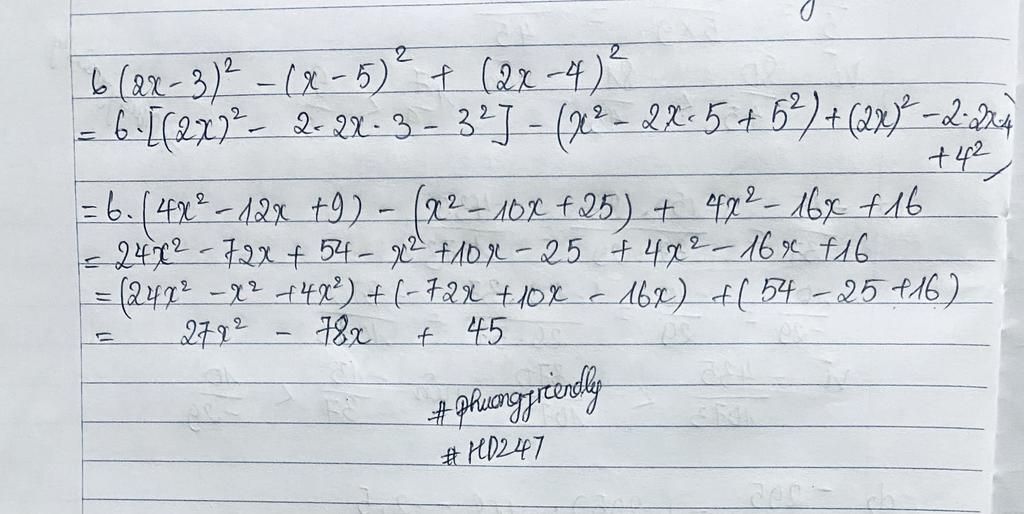 6 (2x - 3)² - (x - 5)² + (2x - 4)²
= 6 · [(2x)² - 2 · 2x · 3 - 3²] - (x² - 2x · 5 + 5²) + (2x)² - 2 · 2x · 4
+ 4²)
= 6 · (4x² - 12x + 9) - (x² - 10x + 25) + 4x² - 16x + 16
= 24x² - 72x + 54 - x² + 10x - 25 + 4x² - 16x + 16
= (24x² - x² + 4x²) + (-72x + 10x - 16x) + (54 - 25 + 16)
= 27x² - 78x + 45
#phuongfriendly
#HD247